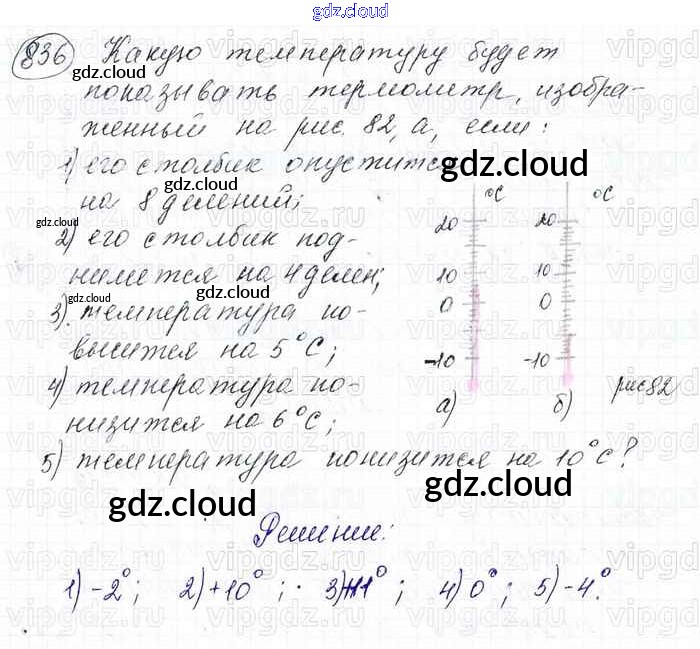 gdz.cloud
836 Какую температуру будет
gdz.cloud
показывать термометр, изобра-
женный на рис. 82, а, если:
1) его столбик опустится
gdz.cloud
на 8 делений;
gdz.cloud
gdz.cloud
2) его столбик под-
нимется на 4 делен;
3) температура по-
gdz.cloud
gdz.cloud
высится на 5°С;
4) температура по-
низится на 6°С;
°С °С
20 20
10 10
0 0
-10 -10
а) б) рис 82
5) температура понизится на 10°С?
gdz.cloud
gdz.cloud
Решение:
gdz.cloud
1) -2°; 2) +10°; 3) +11°; 4) 0°; 5) -4°.